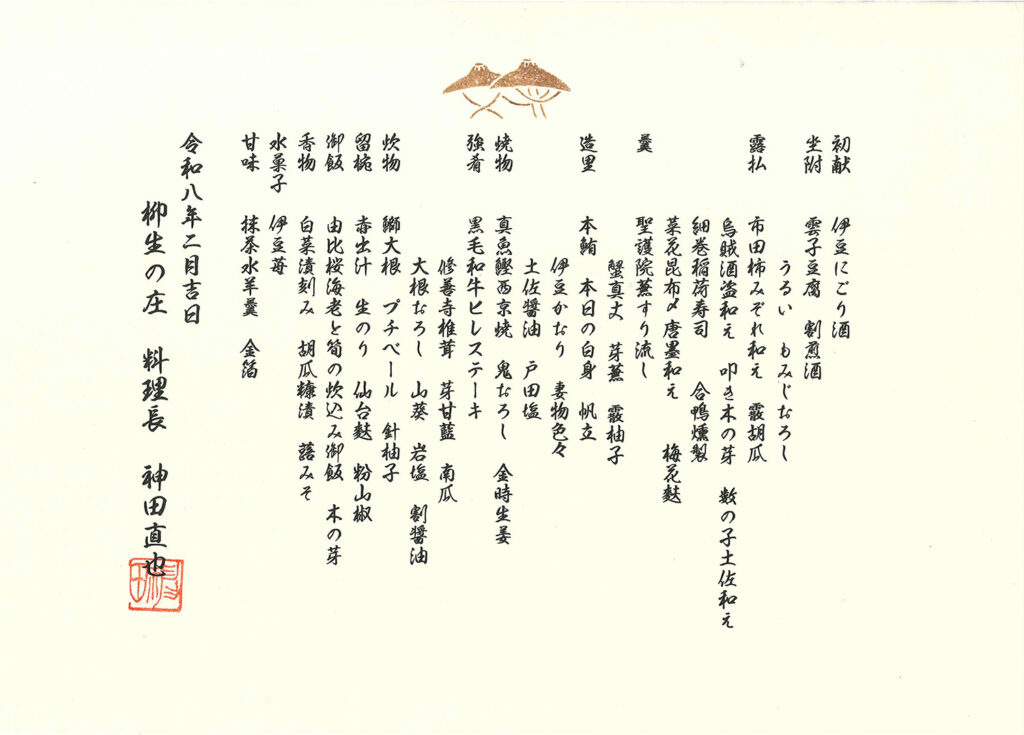 初献 伊豆にごり酒
坐附 雲子豆腐 割煎酒
うるい もみじおろし
露払 市田柿みぞれ和え 霰胡瓜
烏賊酒盗和え 叩き木の芽 数の子土佐和え
細巻稲荷寿司 合鴨燻製
菜花昆布〆唐墨和え 梅花麩
羹 聖護院蕪すり流し
蟹真丈 芽蕪 霰柚子
造里 本鮪 本日の白身 帆立
伊豆かなり 妻物色々
土佐醤油 戸田塩
焼物 真魚鰹西京焼 鬼おろし 金時生姜
強肴 黒毛和牛ヒレステーキ
修善寺椎茸 芽甘藍 南瓜
大根おろし 山葵 岩塩 割醤油
炊物 鰤大根 プチベール 針柚子
留椀 赤出汁 生のり 仙台麩 粉山椒
御飯 由比桜海老と筍の炊込み御飯 木の芽
香物 白菜漬刻み 胡瓜糠漬 蕗みそ
水菓子 伊豆苺
甘味 抹茶水羊羹 金箔
令和八年二月吉日
柳生の庄 料理長 神田直也